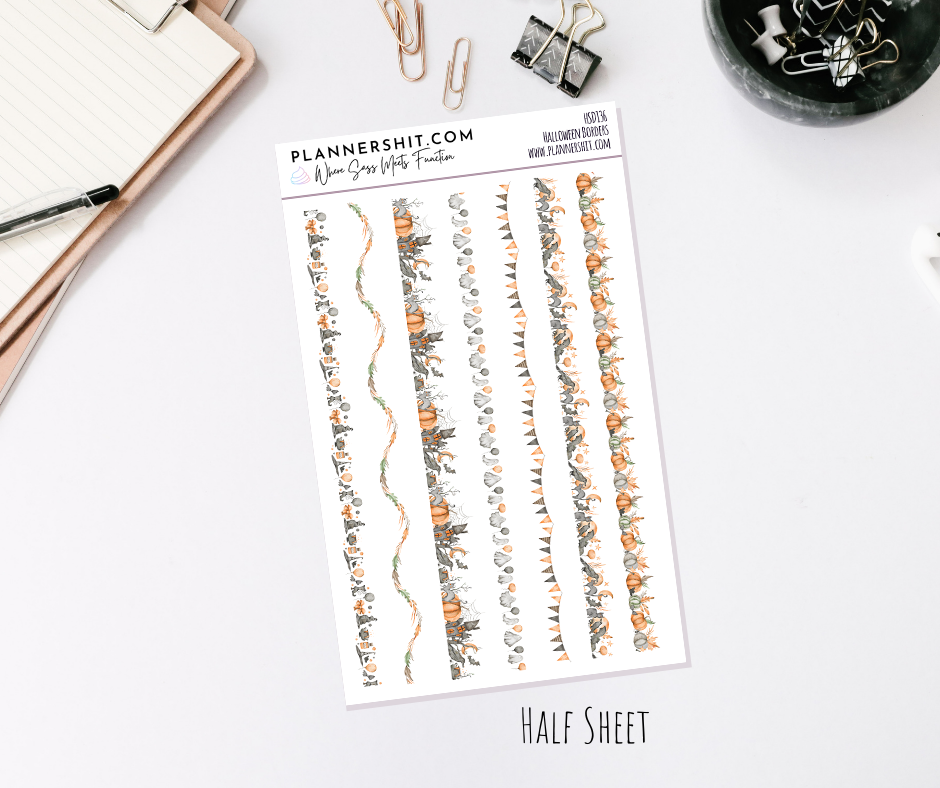 PLANNERSHIT.COM
Where Sass Meets Function
HSD136
Halloween Borders
www.plannershit.com
Half Sheet